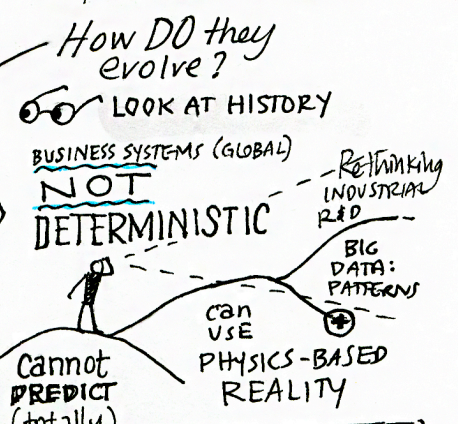 How DO they
evolve?
LOOK AT HISTORY
BUSINESS SYSTEMS (GLOBAL)
NOT
DETERMINISTIC
Rethinking
INDUSTRIAL
R&D
BIG
DATA:
PATTERNS
can
USE
PHYSICS-BASED
REALITY
Cannot
PREDICT
(totally)